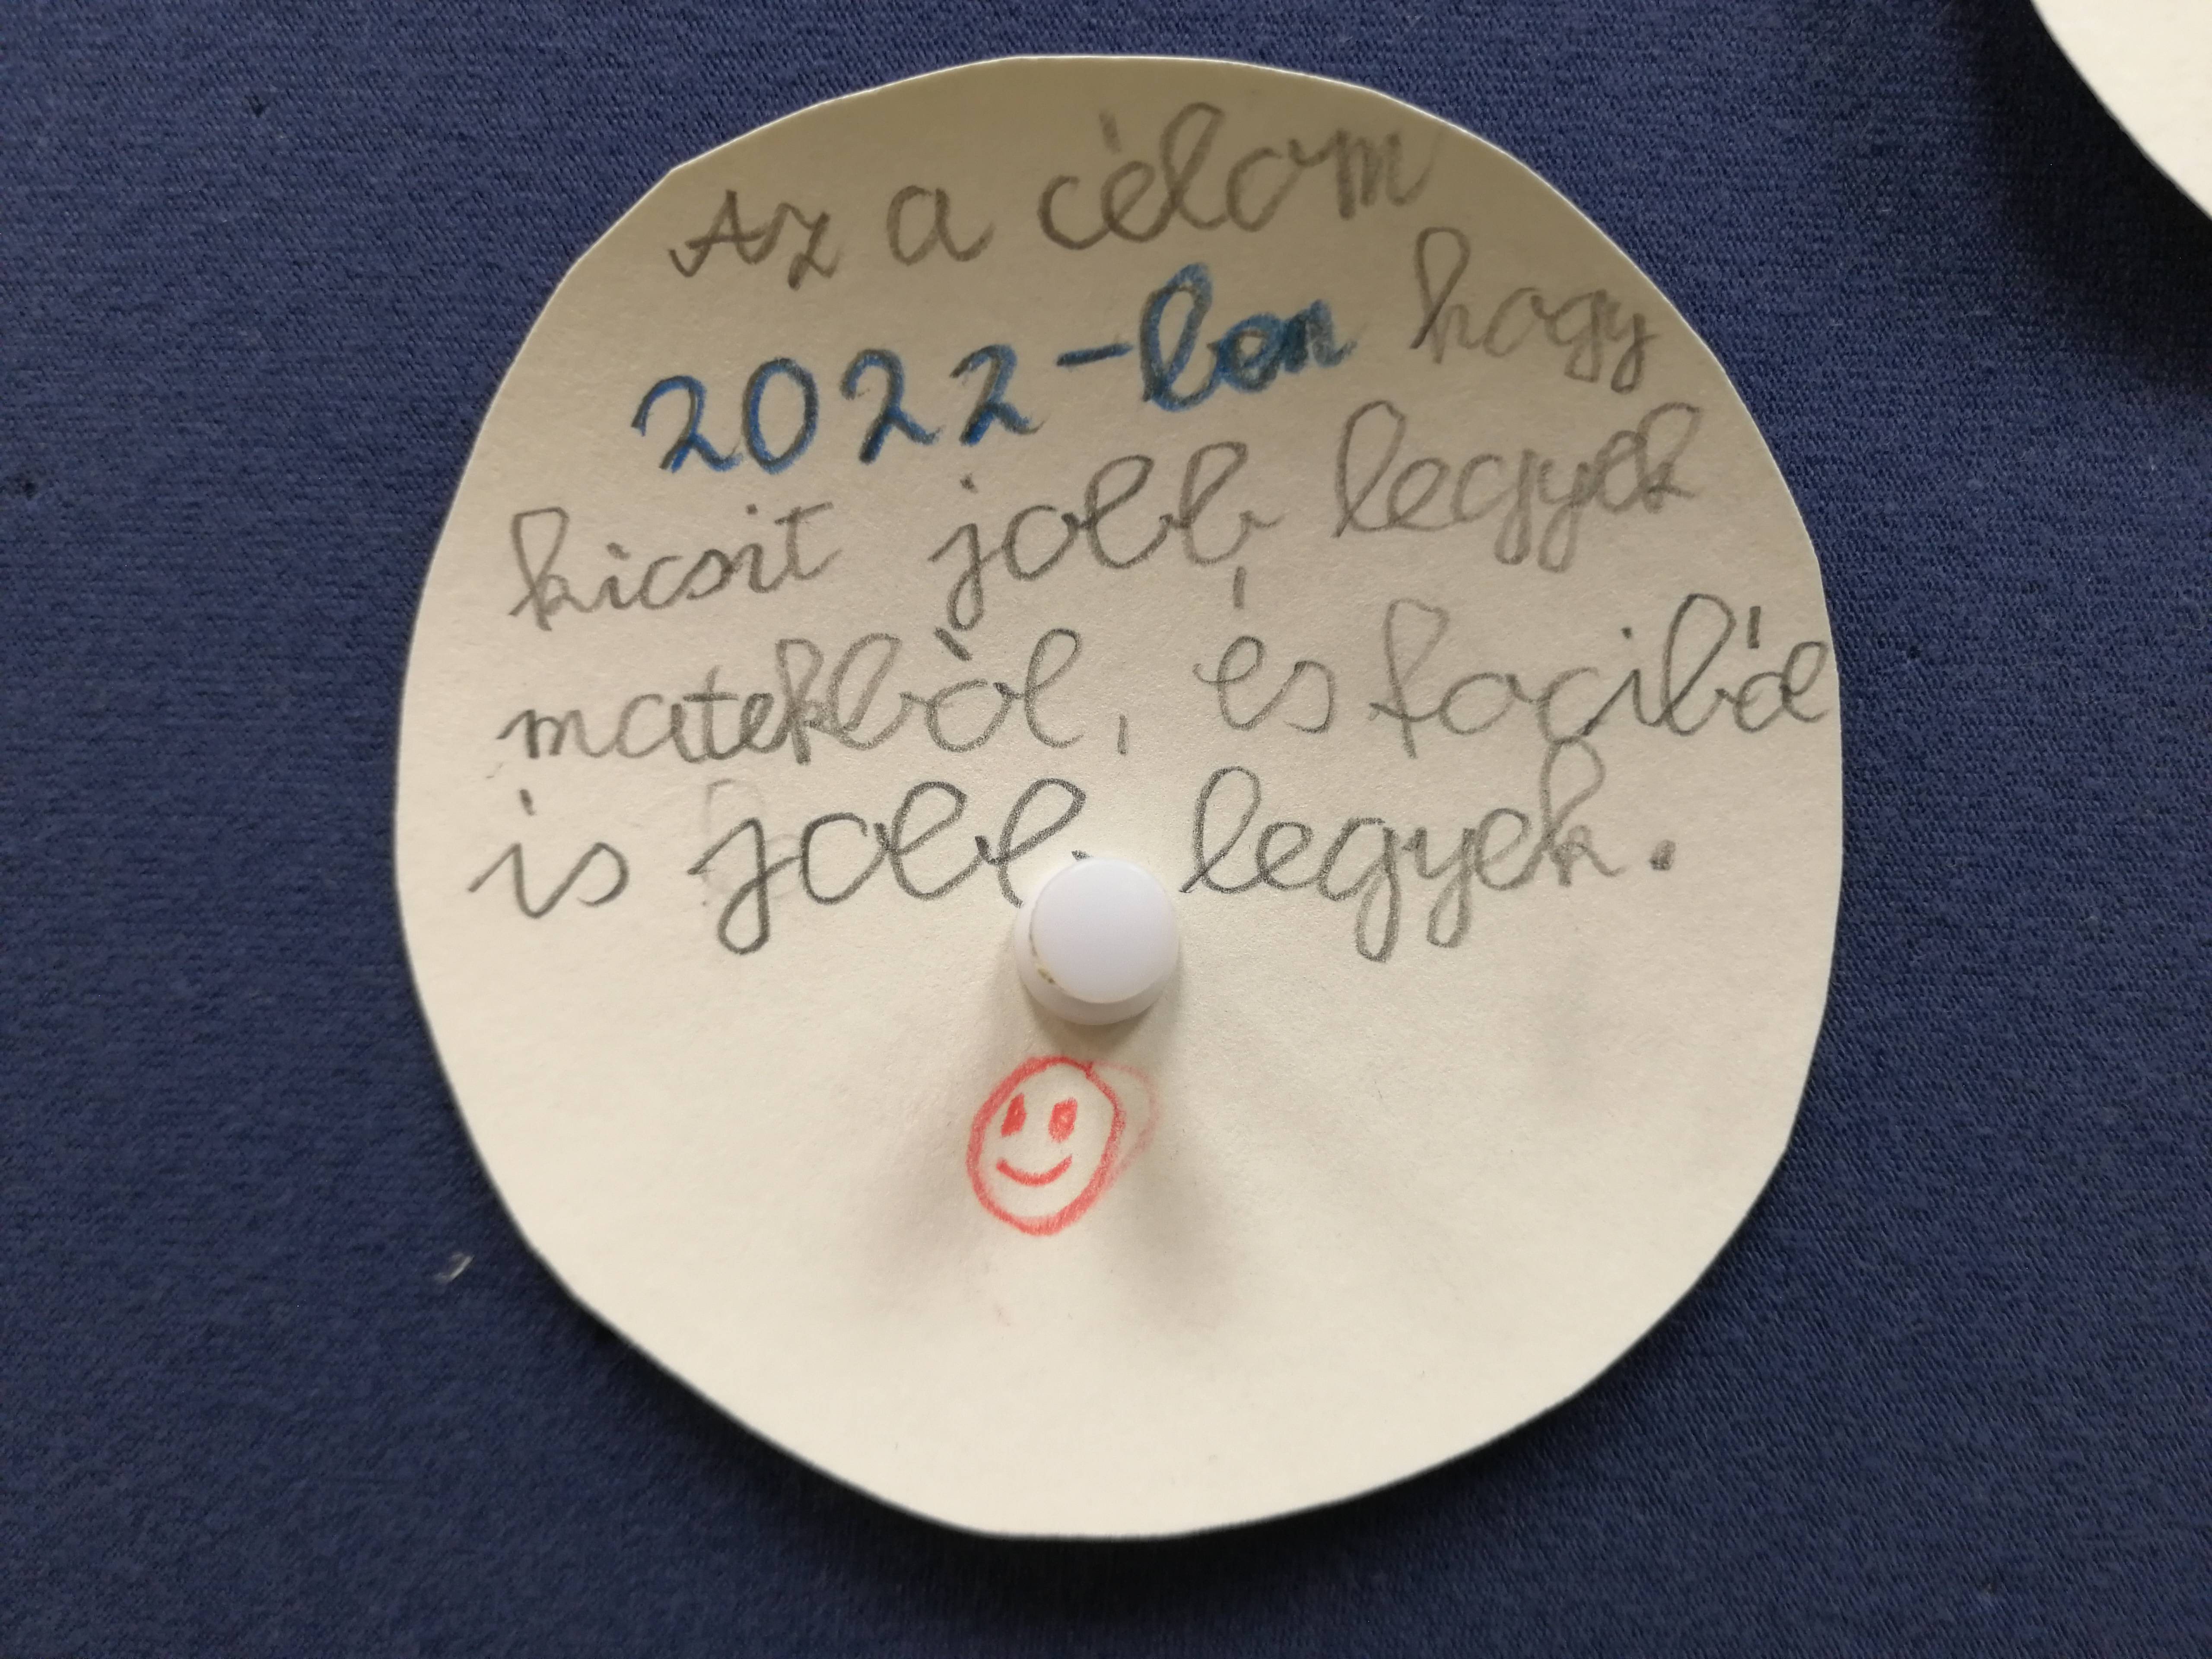 Az a célom
2022-ben hogy
kicsit jobb legyek
matekból, és fociból
is jobb legyek.